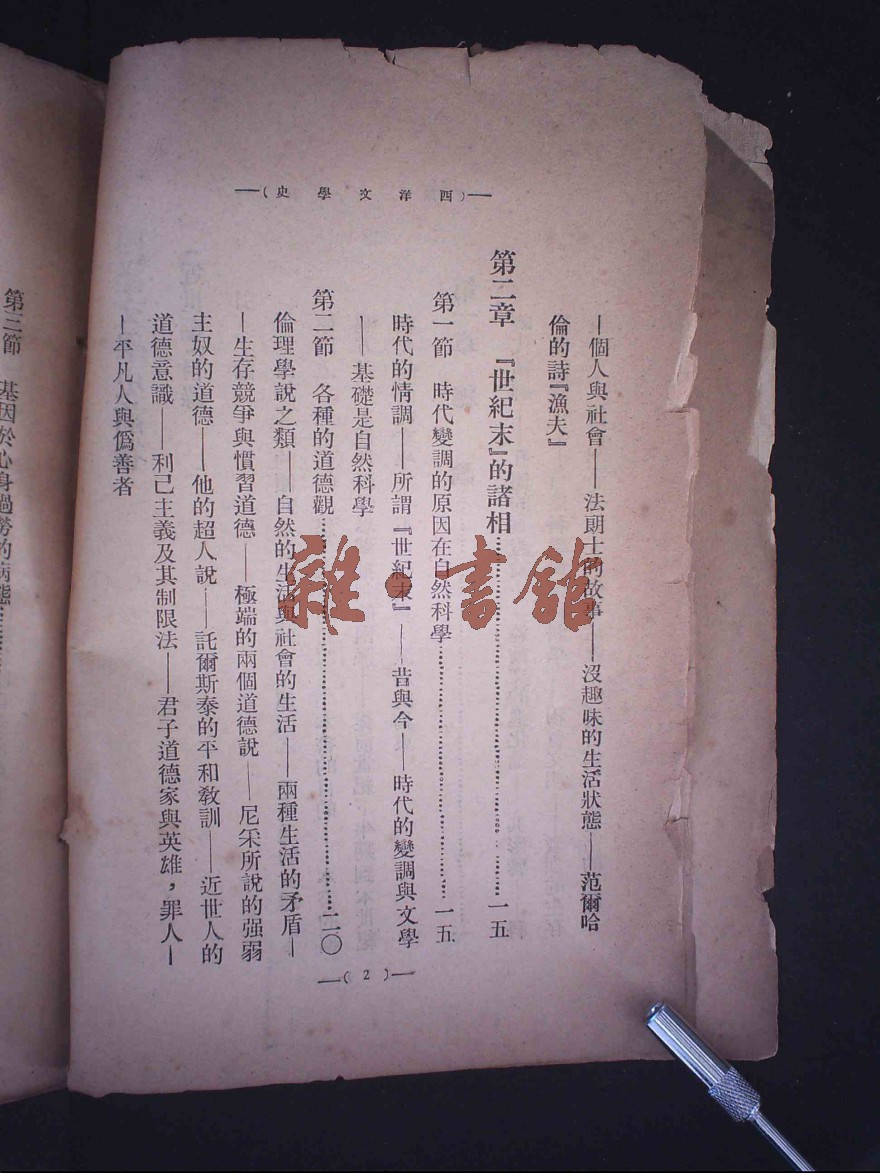 —(西洋文學史)—
—個人與社會——法朗士的故事——沒趣味的生活狀態——范爾哈
倫的詩『漁夫』
第二章 『世紀末』的諸相……一五
第一節 時代變調的原因在自然科學……一五
時代的情調——所謂『世紀末』——昔與今——時代的變調與文學
——基礎是自然科學
第二節 各種的道德觀……二〇
倫理學說之類——自然的生活與社會的生活——兩種生活的矛盾—
—生存競爭與慣習道德——極端的兩個道德說——尼采所說的强弱
主奴的道德——他的超人說——託爾斯泰的平和教訓——近世人的
道德意識——利己主義及其制限法——君子道德家與英雄，罪人—
—平凡人與僞善者
—(2)—
第三節 基因於心身過勞的病態……
雜·書館